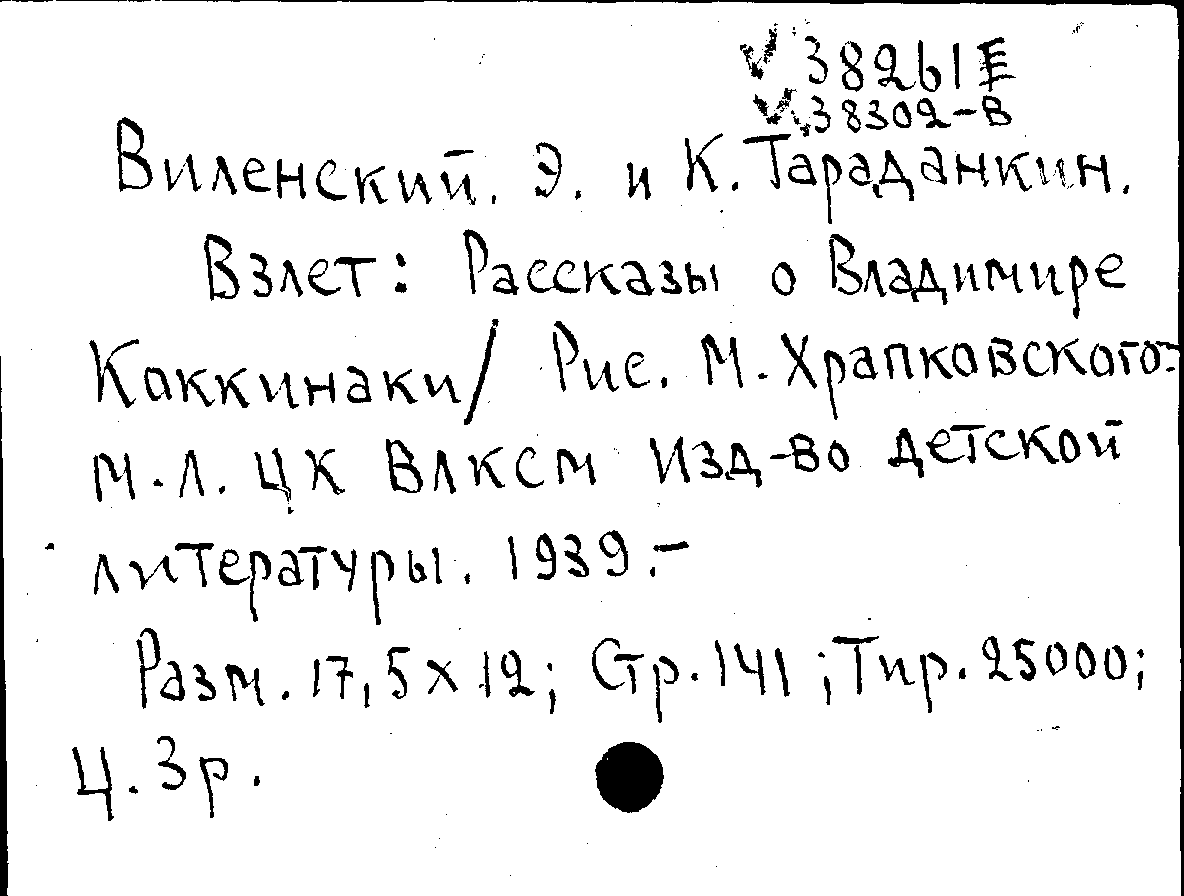 38261 E
38302-В
Виленский. Э. и К. Тараданкин.
Взлет: Рассказы о Владимире
Коккинаки/ Рис. М. Храпковского-
М.Л. ЦК ВЛКСМ Изд-во детской
литературы. 1939.-
Разм. 17,5 x 12; Стр. 141; Тир. 25000;
Ц. 3р.